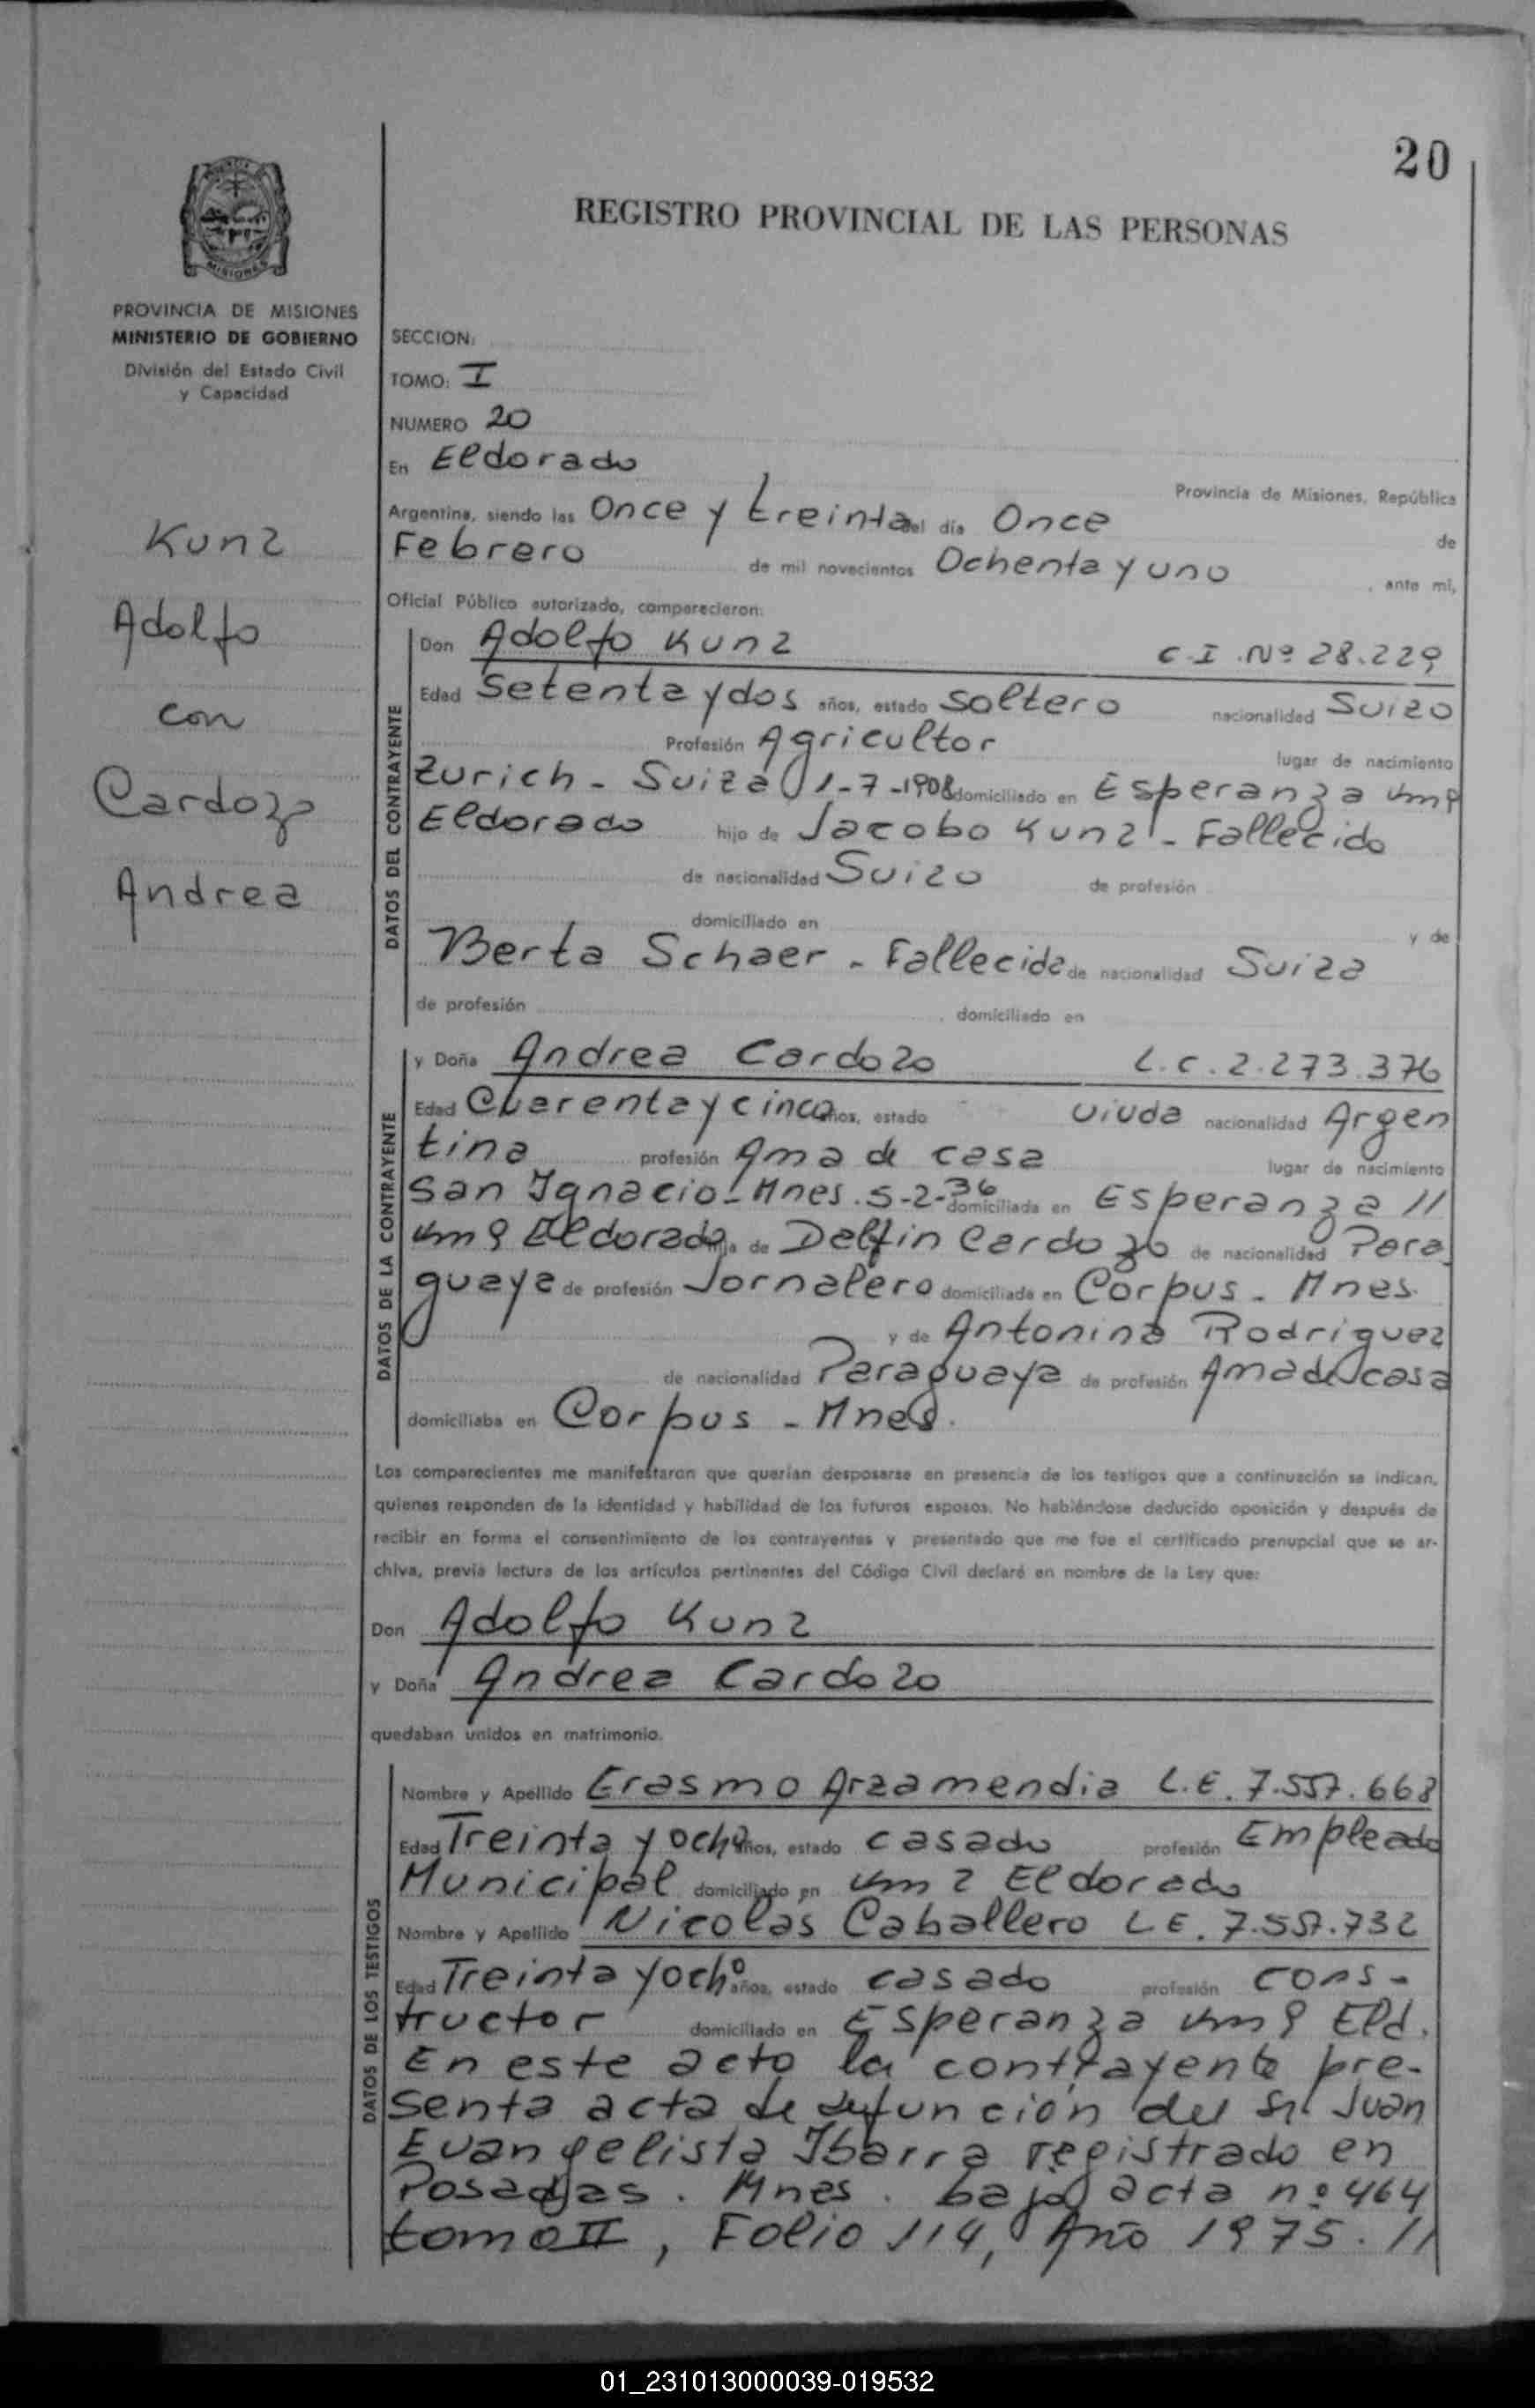 20
REGISTRO PROVINCIAL DE LAS PERSONAS
MISIONES
PROVINCIA DE MISIONES
MINISTERIO DE GOBIERNO
División del Estado Civil
y Capacidad
Kunz
Adolfo
con
Cardozo
Andrea
SECCION:
TOMO: I
NUMERO 20
En Eldorado
Provincia de Misiones, República
Argentina, siendo las Once y treinta del día Once de
Febrero de mil novecientos Ochenta y uno , ante mi,
Oficial Público autorizado, comparecieron:
DATOS DEL CONTRAYENTE
Don Adolfo Kunz C.I. Nº 28.229
Edad Setenta y dos años, estado Soltero nacionalidad Suizo
Profesión Agricultor lugar de nacimiento
Zurich - Suiza 1-7-1908 domiciliado en Esperanza km 9
Eldorado hijo de Jacobo Kunz - Fallecido
de nacionalidad Suizo de profesión
domiciliado en y de
Berta Schaer - Fallecida de nacionalidad Suiza
de profesión , domiciliado en
DATOS DE LA CONTRAYENTE
y Doña Andrea Cardozo L.C. 2.273.376
Edad Cuarenta y cinco años, estado Viuda nacionalidad Argen
tina profesión Ama de casa lugar de nacimiento
San Ignacio - Mnes. 5-2-36 domiciliada en Esperanza //
km 9 Eldorado hija de Delfin Cardozo de nacionalidad Para
guaya de profesión Jornalero domiciliado en Corpus - Mnes.
y de Antonina Rodriguez
de nacionalidad Paraguaya de profesión Ama de casa
domiciliaba en Corpus - Mnes.
Los comparecientes me manifestaron que querían desposarse en presencia de los testigos que a continuación se indican,
quienes responden de la identidad y habilidad de los futuros esposos. No habiéndose deducido oposición y después de
recibir en forma el consentimiento de los contrayentes y presentado que me fue el certificado prenupcial que se ar-
chiva, previa lectura de los artículos pertinentes del Código Civil declaré en nombre de la Ley que:
Don Adolfo Kunz
y Doña Andrea Cardozo
quedaban unidos en matrimonio.
DATOS DE LOS TESTIGOS
Nombre y Apellido Erasmo Arzamendia L.E. 7.557.668
Edad Treinta y ocho años, estado casado profesión Empleado
Municipal domiciliado en km 2 Eldorado
Nombre y Apellido Nicolas Caballero L E. 7.557.732
Edad Treinta y ocho años, estado casado profesión Cons-
tructor domiciliado en Esperanza km 9 Eld.
En este acto la contrayente pre-
senta acta de defunción del Sr. Juan
Evangelista Ibarra registrado en
Posadas. Mnes. bajo acta nº 464
tomo II, Folio 114, Año 1975. //
01_231013000039-019532